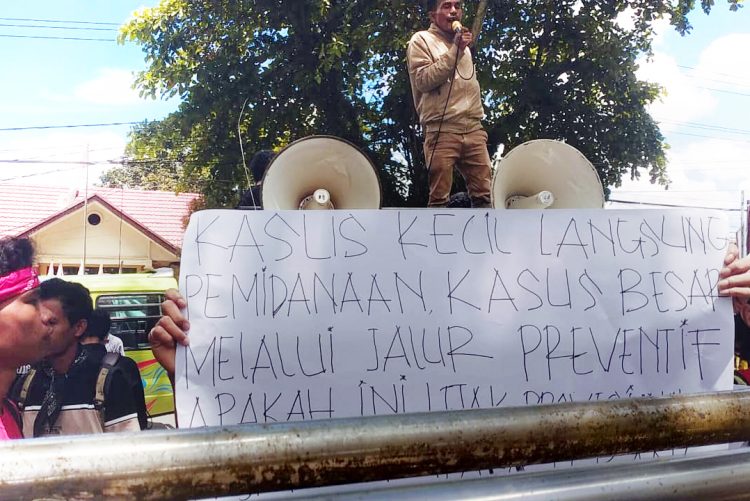 KASUS KECIL LANGSUNG
PEMIDANAAN, KASUS BESAR
MELALUI JALUR PREVENTIF
APAKAH INI